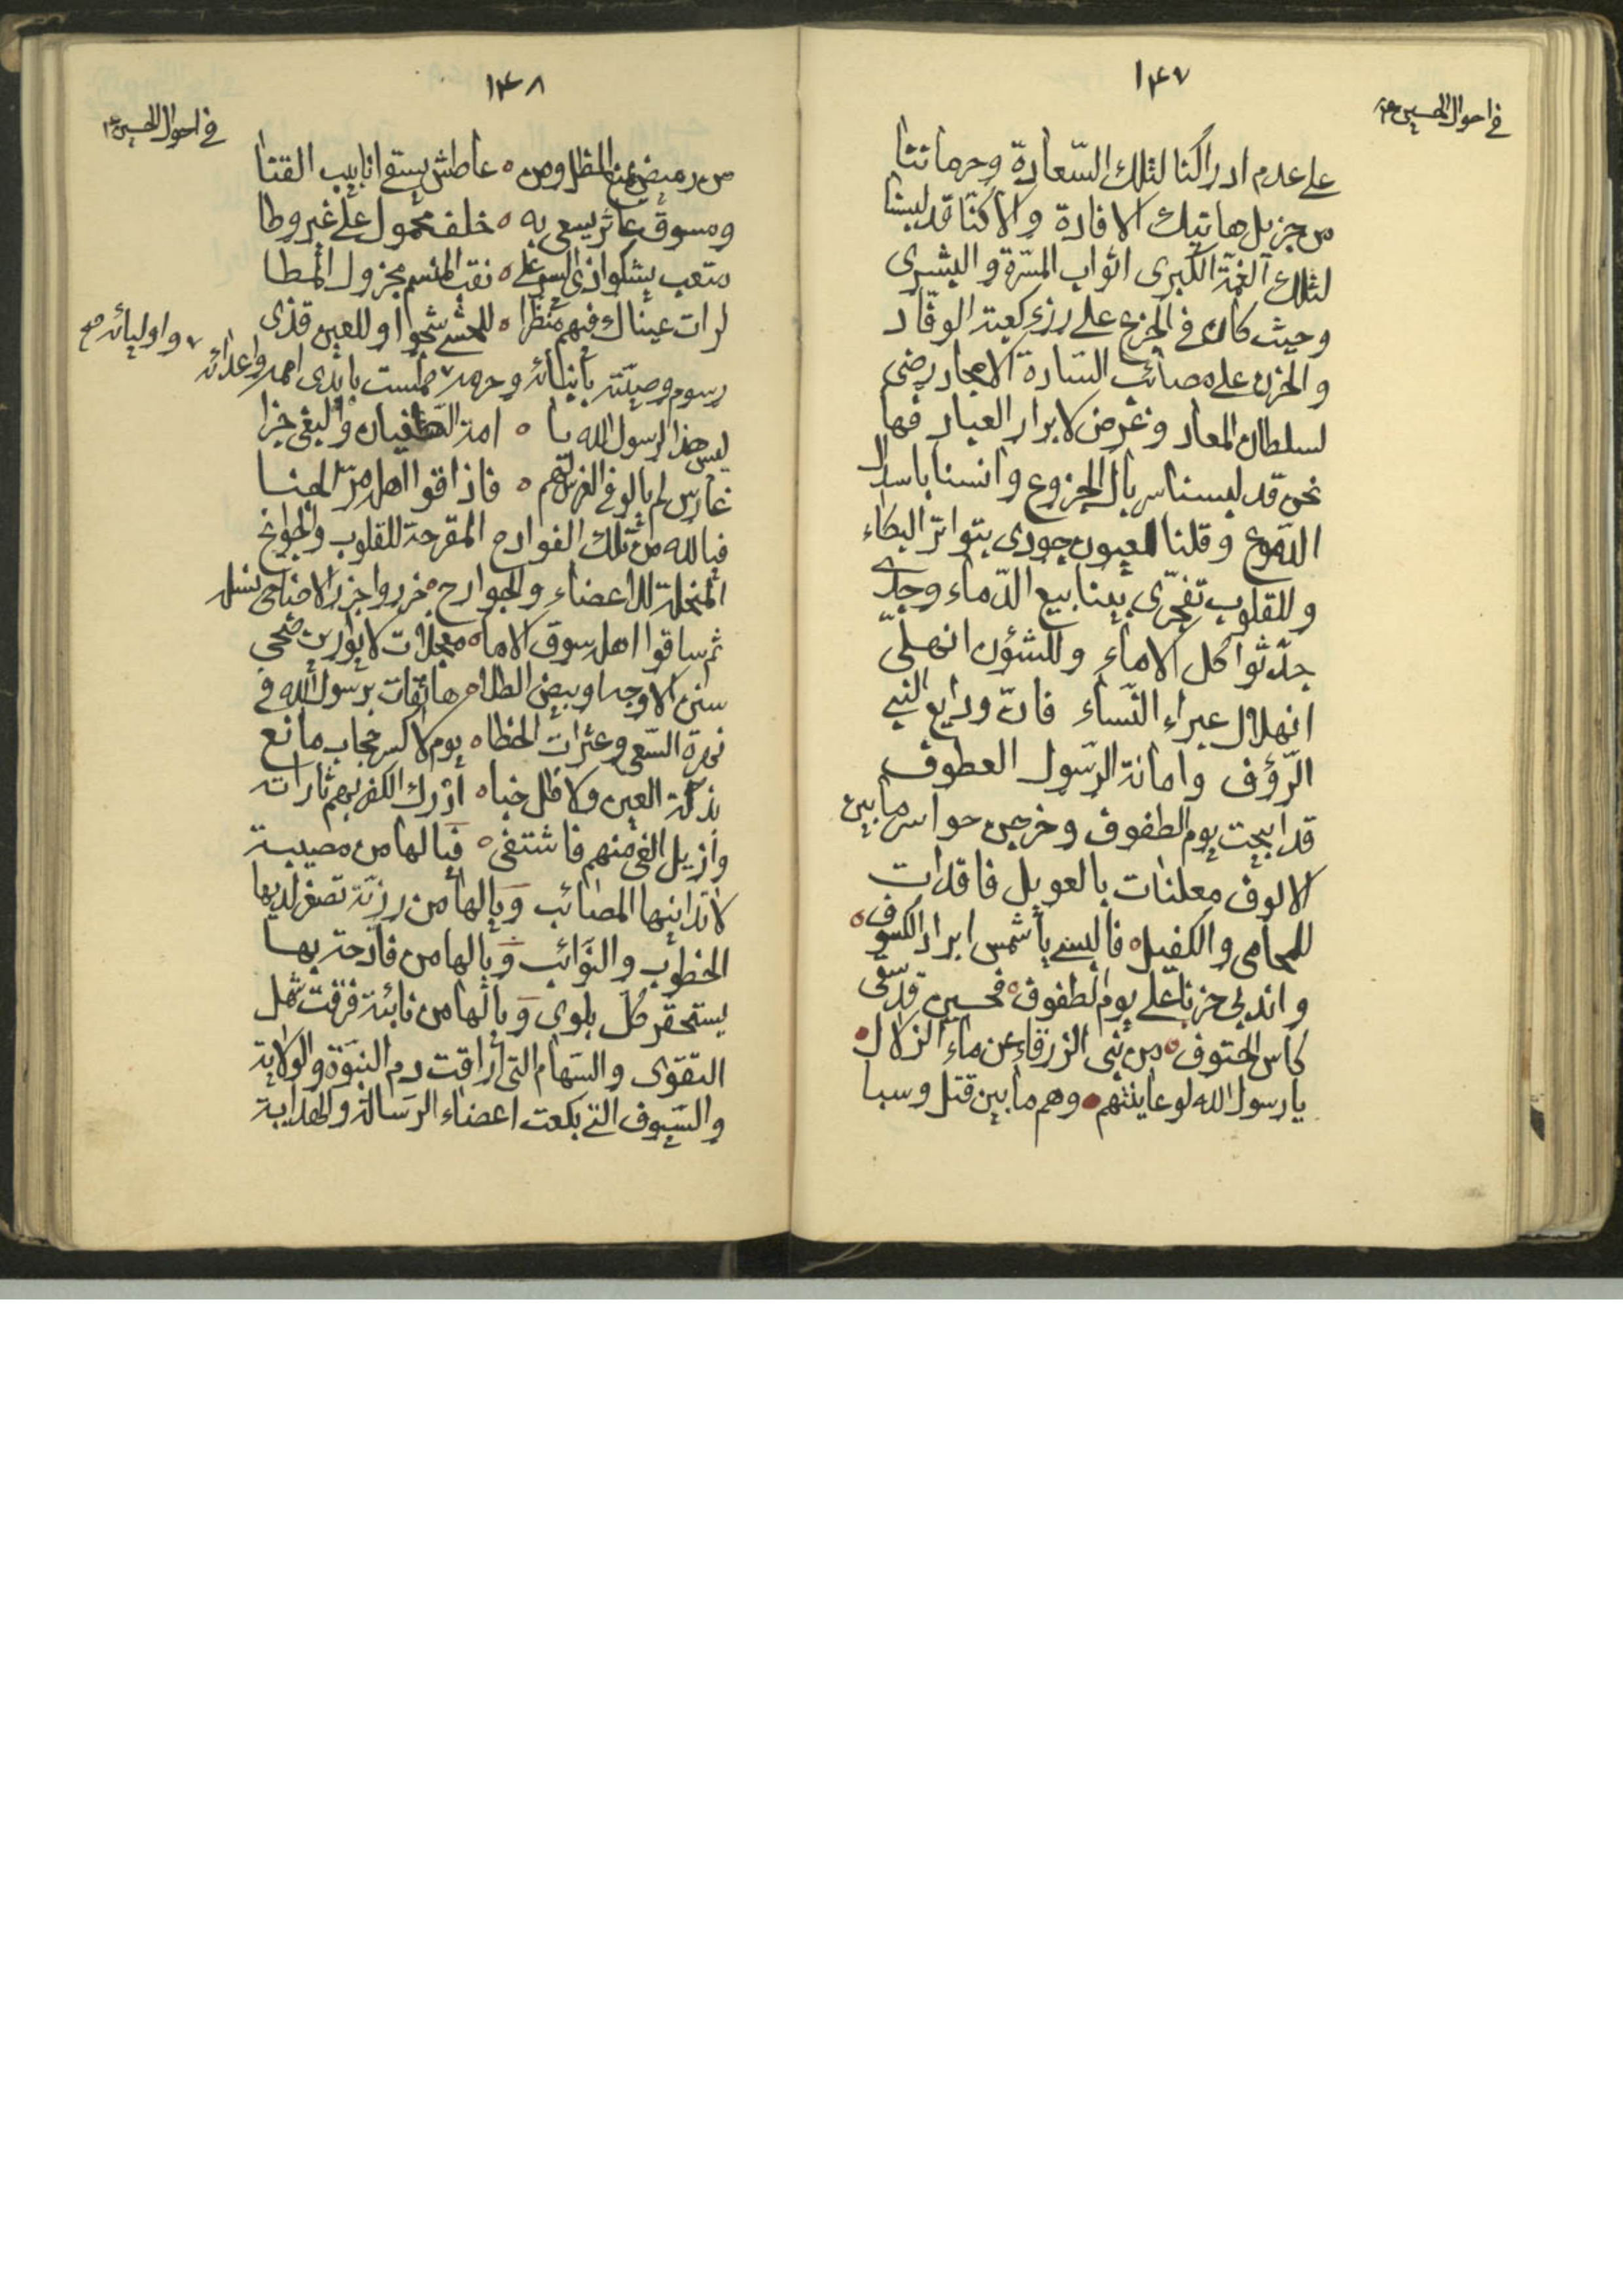 ١٤٧
في احوال الحسين ع
على عدم ادراكنا لتلك السّعادة وحرماننا
من جزيل هاتيك الافادة والا كنّا قد لبسنا
لتلك النعمة الكبرى اثواب المسّرة والبشرى
وحيث كان في الجزع على رزء كعبة الوفّاد
والحزن على مصائب السّادة الامجاد رضى
لسلطان المعاد وغرض لابرار العباد فها
نحن قد لبسنا سربال الجزوع وانسنا باسبال
الدّموع وقلنا للعيون جودى بتواتر البكاء
وللقلوب تفجّرى بينابيع الدّماء وجدّى
جدّ ثواكل الاماء وللشؤن انهلّى
انهلال عبراء النّساء فانّ ودايع النبي
الرّؤف وامانة الرّسول العطوف
قد ابيحت يوم الطفوف وخرجن حواسر ما بين
الالوف معلنات بالعويل فاقدات
للمحامى والكفيل فالبسي يا شمس ابراد الكسوف
واندبى حزنا على يوم الطفوف فحسين قد سقى
كاس الحتوف من بنى الزرقاء عن ماء الزلال
يا رسول الله لو عاينتهم وهم ما بين قتل وسبا
١٤٨
في احوال الحسين ع
من رميض يمنع الظل ومن عاطش يسقى انابيب القنا
ومسوق عاثر يسعى به خلف محمول على غير وطا
متعب يشكو اذى السير على نقب المنسم مجزول المطا
لرات عيناك فيهم منظرا للحشى شجوا وللعين قذى
رسوم وصيّته بأبنائه وحرمه طمست بايدى امته واعدائه
واوليائه صح
ليس هذا لرسول الله يا امة الطغيان والبغى جزا
غارس لم يالو في الغرس لهم فاذاقوا اهله مرّ الجنا
فيا لله من تلك الفوادح المقرحة للقلوب والجوانح
المنحلة للاعضاء والجوارح جزروا جزر الاضاحى نسله
ثم ساقوا اهله سوق الاماه معجلات لا يوارين ضحى
سنن الاوجه او بيض الطلاه هاتفات برسول الله في
بهرة السّعى وعثرات الخطاه يوم لا كسر حجاب مانع
بذلة العين ولا ظل خباه ادرك الكفر بهم ثاراته
وازيل الغى منهم فاشتفى فيا لها من مصيبة
لا تدانيها المصائب ويا لها من رزيّة تصغر لديها
الخطوب والنوائب ويا لها من فادحة بها
يستحقر كل بلوى ويا لها من نائبة فرّقت شمل
التقوى والسّهام التى اراقت دم النبوّة والولاية
والسّيوف التى بكعت اعضاء الرسالة والهداية